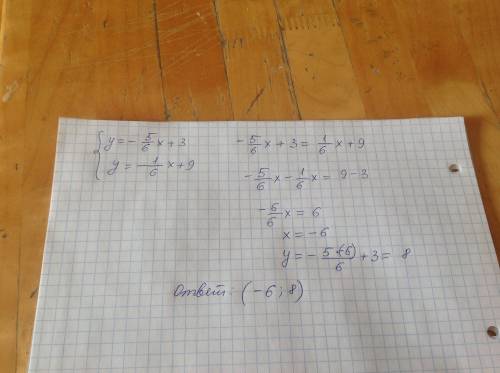 { y = - 5/6 x + 3
y = 1/6 x + 9
- 5/6 x + 3 = 1/6 x + 9
- 5/6 x - 1/6 x = 9 - 3
- 6/6 x = 6
x = -6
y = - 5·(-6)/6 + 3 = 8
Ответ: (-6; 8)